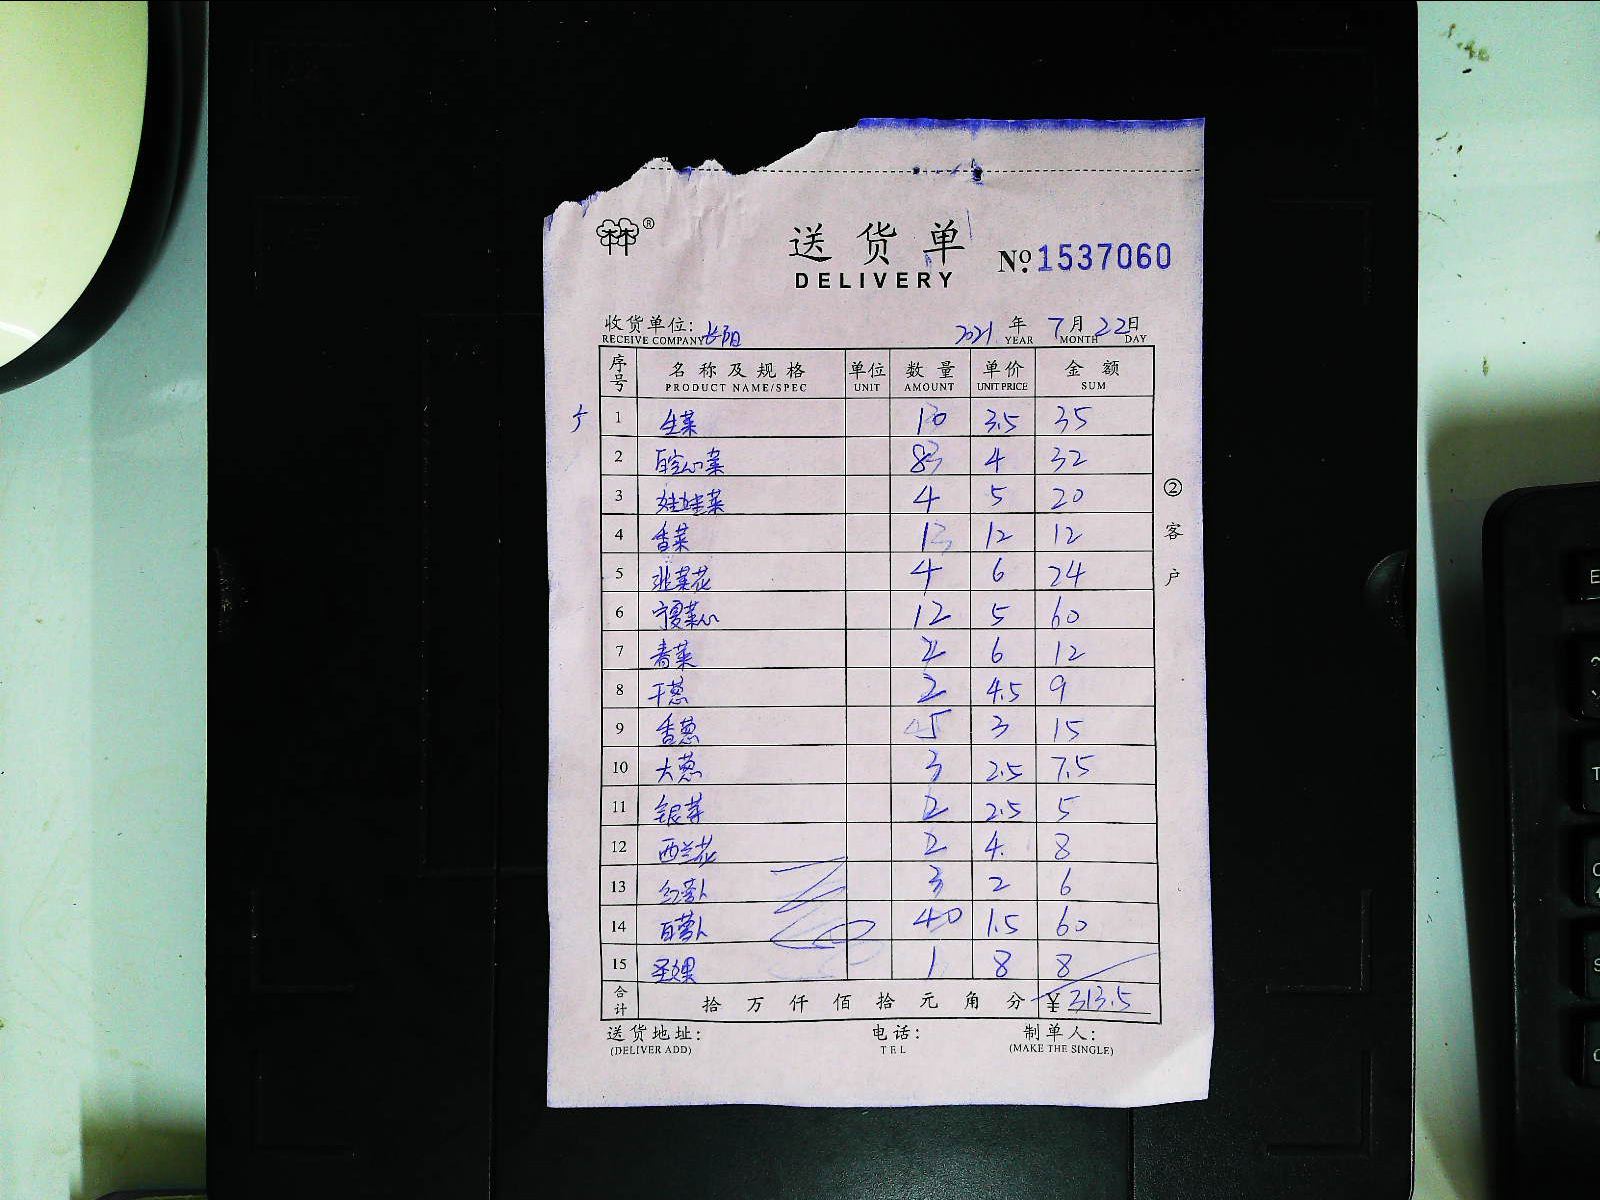 林林®
送货单
DELIVERY
№ 1537060
收货单位: 长阳 2021 年 7 月 22 日
RECEIVE COMPANY YEAR MONTH DAY
序号 名称及规格 单位 数量 单价 金额
PRODUCT NAME/SPEC UNIT AMOUNT UNIT PRICE SUM
1 生菜 10 3.5 35
2 白空心菜 8 4 32
3 娃娃菜 4 5 20
4 香菜 1 12 12
5 韭菜花 4 6 24
6 宁夏菜心 12 5 60
7 青菜 2 6 12
8 干葱 2 4.5 9
9 香葱 5 3 15
10 大葱 3 2.5 7.5
11 银芽 2 2.5 5
12 西兰花 2 4. 8
13 红萝卜 3 2 6
14 白萝卜 40 1.5 60
15 圣女果 1 8 8
合计 拾万仟佰拾元角分 ¥ 313.5
送货地址: 电话: 制单人:
(DELIVER ADD) TEL (MAKE THE SINGLE)
②客户